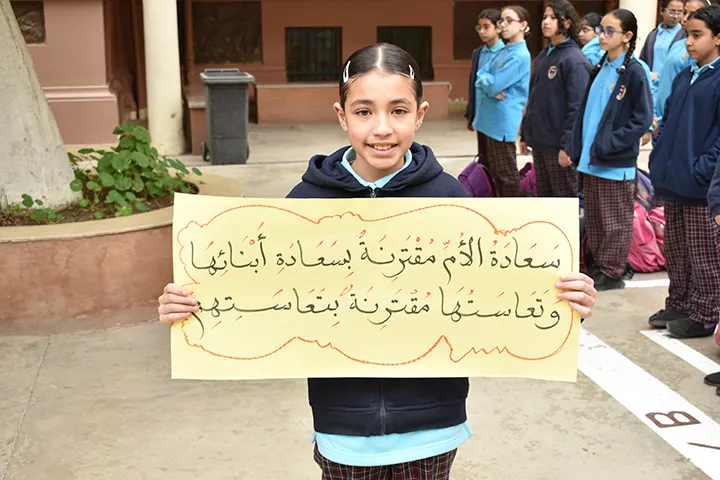 سَعَادَةُ الأُمِّ مُقْتَرِنَةٌ بِسَعَادَةِ أَبْنَائِهَا
وَتَعَاسَتُهَا مُقْتَرِنَةٌ بِتَعَاسَتِهِمْ
B